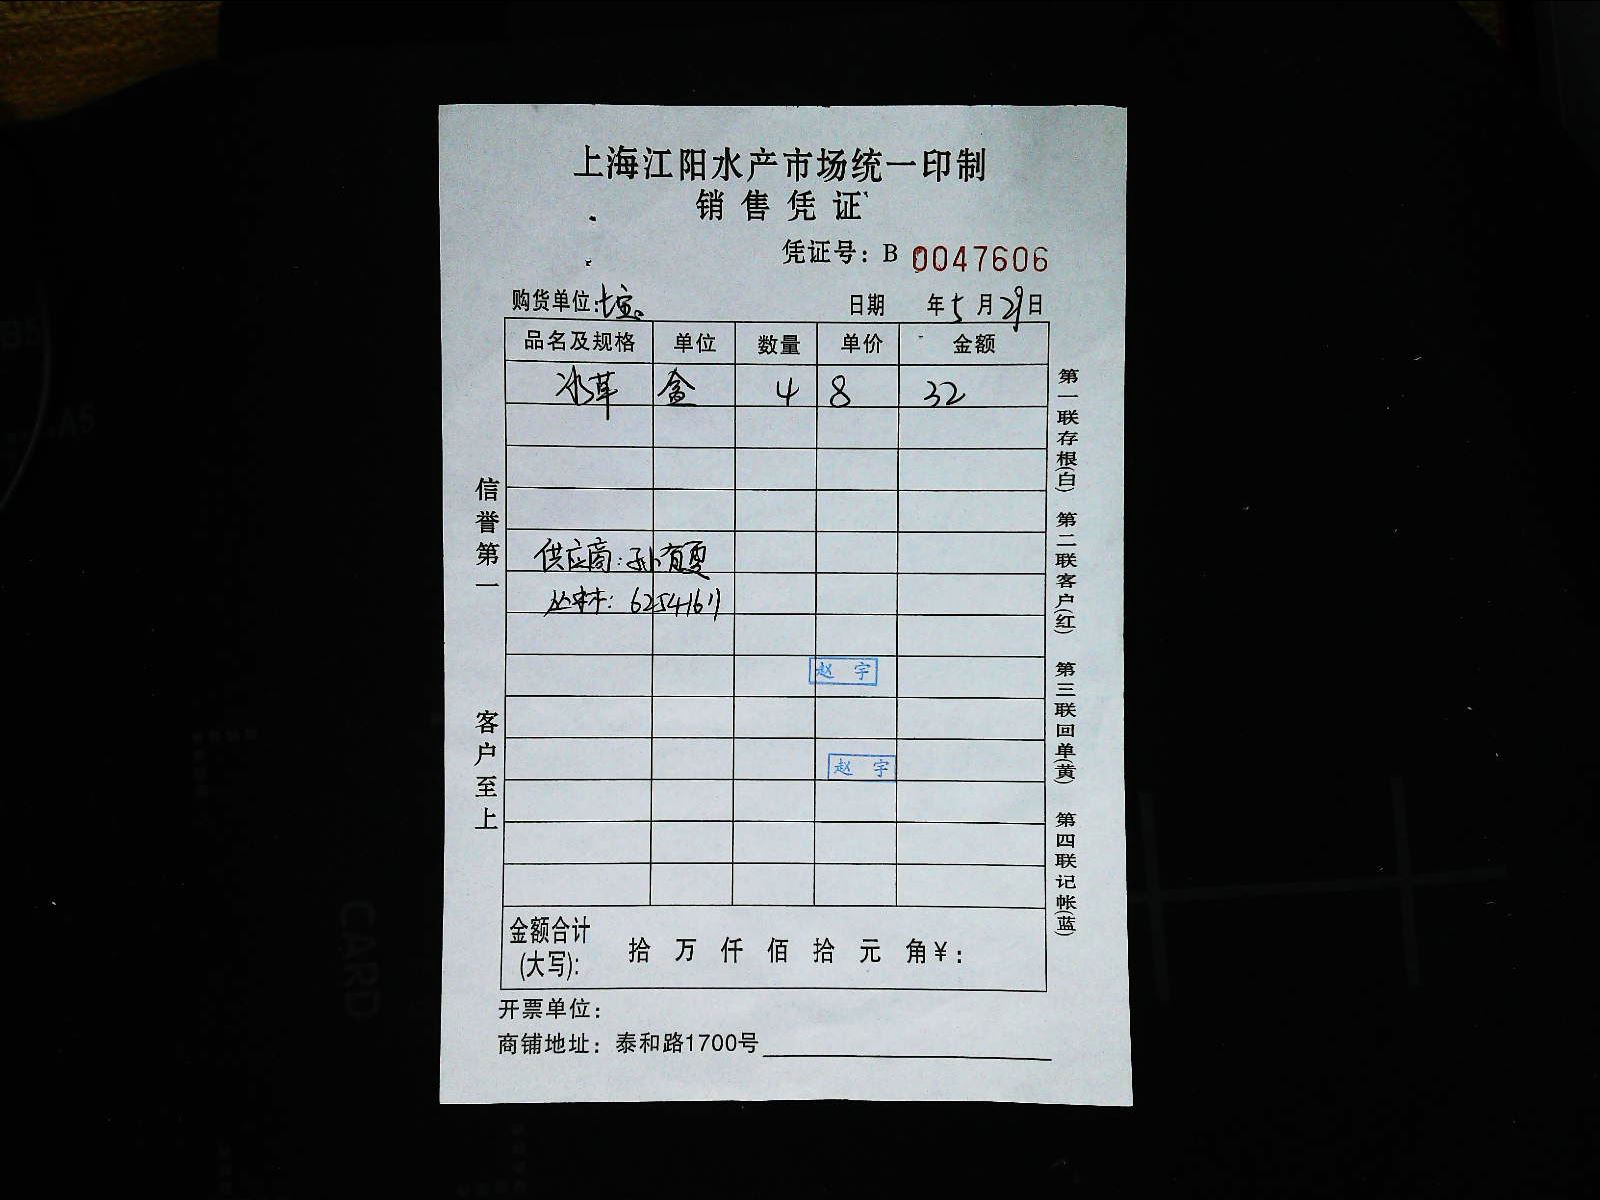 上海江阳水产市场统一印制
销售凭证
凭证号：B 0047606
购货单位： 日期 年5月29日
品名及规格 单位 数量 单价 金额
冰草 盒 4 8 32
供应商：孙有夏
丛林：62541611
赵宇
赵宇
金额合计(大写)： 拾 万 仟 佰 拾 元 角 ¥：
开票单位：
商铺地址：泰和路1700号
信誉第一
客户至上
第一联存根(白)
第二联客户(红)
第三联回单(黄)
第四联记帐(蓝)
CARD
A5